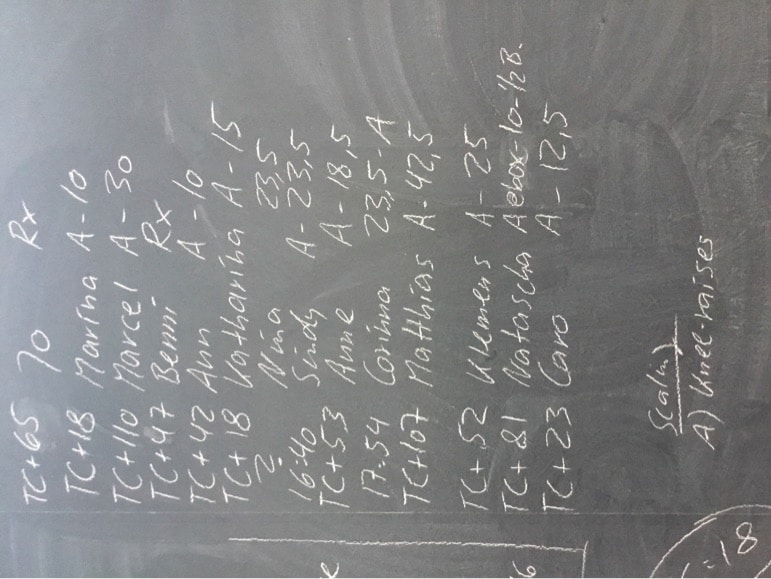 TC+65 Jo Rx
TC+18 Marina A-10
TC+110 Marcel A-30
TC+47 Benni Rx
TC+42 Ann A-10
TC+18 Katharina A-15
? Nina 23,5
16:40 Sindy A-23,5
TC+53 Anne A-18,5
17:54 Corinna 23,5-A
TC+107 Matthias A-42,5
TC+52 Klemens A-25
TC+81 Natascha A box-10-1/2B.
TC+23 Caro A-12,5
Scaling
A) Knee-raises
:18